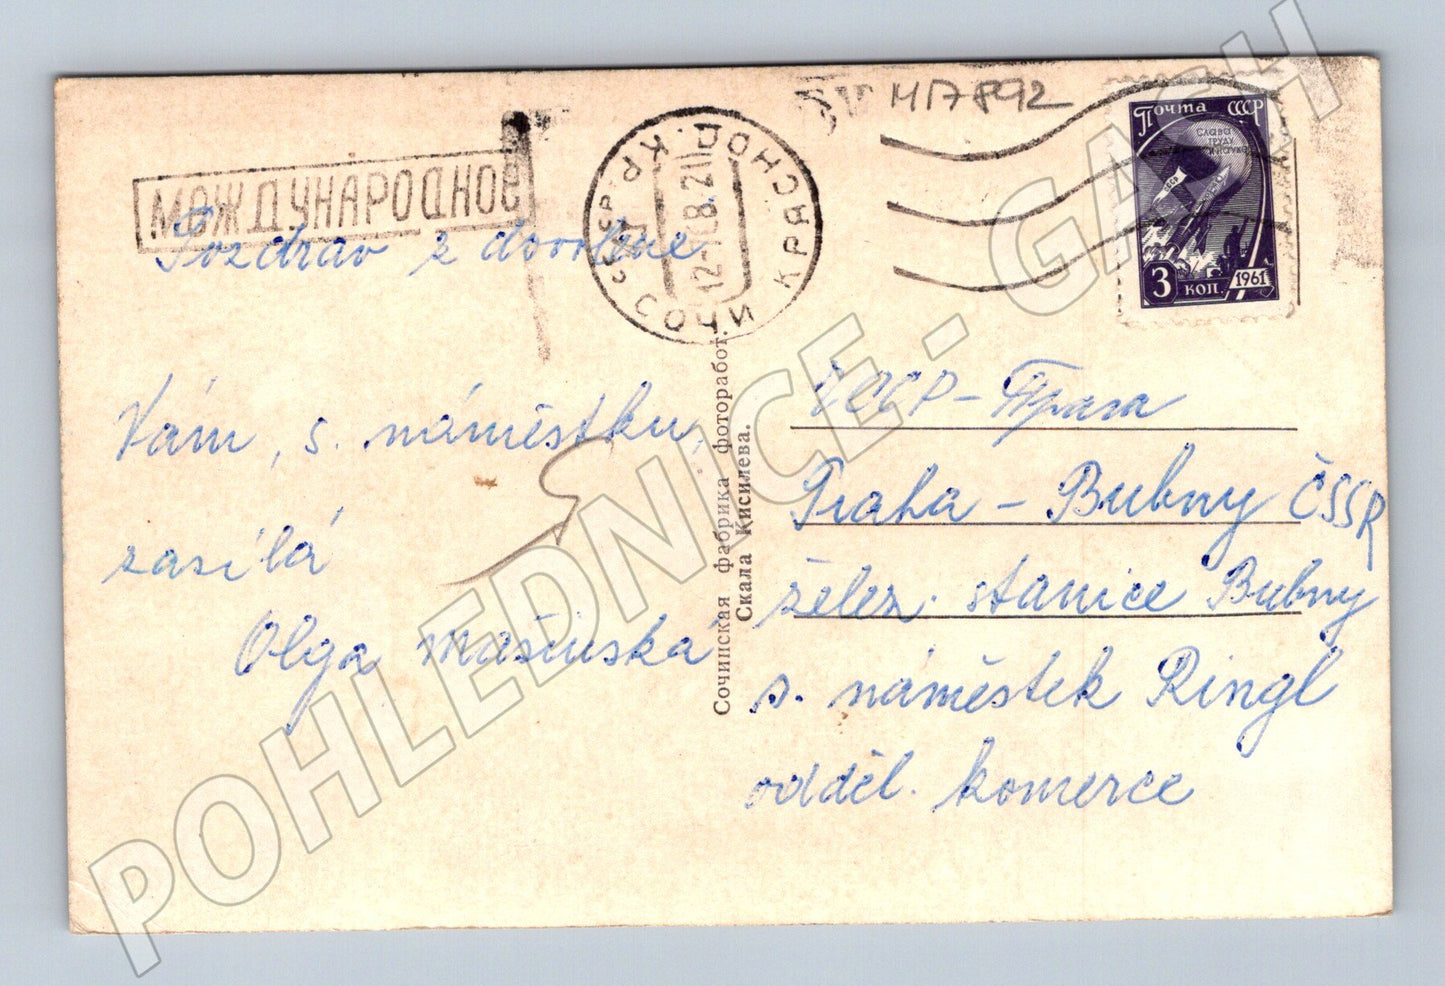 МЕЖДУНАРОДНОЕ
СОЧИ КРАСНОД. КР.
СССР
МП892
Почта СССР
СЛАВА
ТРУДУ
3 коп. 1961
Pozdrav z dovolené
Vám, s. náměstku,
zasílá
Olga Mašínská
Сочинская фабрика фоторабот.
Скала Кисилева.
ЧССР - Прага
Praha - Bubny ČSSR
želez. stanice Bubny
s. náměstek Ringl
odděl. komerce
POHLEDNICE - GASH